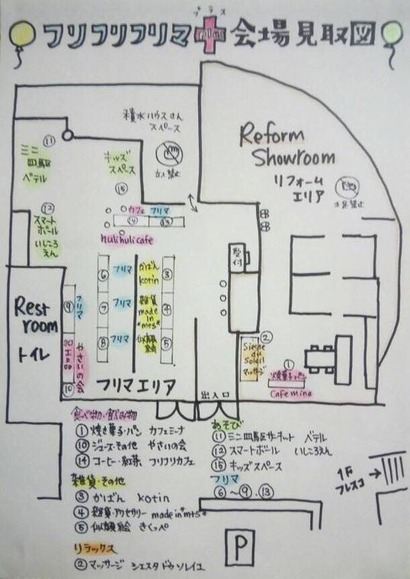 プラス
フリフリフリマ＋会場見取図
積水ハウスさん
スペース
立入禁止
Reform
Showroom
リフォーム
エリア
立入禁止
⑪
ミニ
四駆
ベテル
キッズ
スペース
⑮
⑫
スマート
ボール
いしころ
えん
カフェ フリマ
⑭ ⑬
hulihuli cafe
受付
Rest
room
トイレ
⑨ フリマ
やさいの会
⑩
⑥ フリマ
⑦ フリマ
⑧ フリマ
かばん
kotin ③
雑貨
made in
"mts" ④
似顔絵 ⑤
フリマエリア
出入口
②
Siesta
du
Soleil
マッサージ
①
焼菓子・パン
Cafe mina
食べ物・飲み物
①焼き菓子・パン カフェミーナ
⑩ジュース・その他 やさいの会
⑭コーヒー・紅茶 フリフリカフェ
雑貨・その他
③かばん kotin
④雑貨・アクセサリー made in"mts"
⑤似顔絵 きくっぺ
リラックス
②マッサージ シエスタ ドゥ ソレイユ
あそび
⑪ミニ四駆サーキット ベテル
⑫スマートボール いしころえん
⑮キッズスペース
フリマ
⑥〜⑨.⑬
P
1F
フレスコ